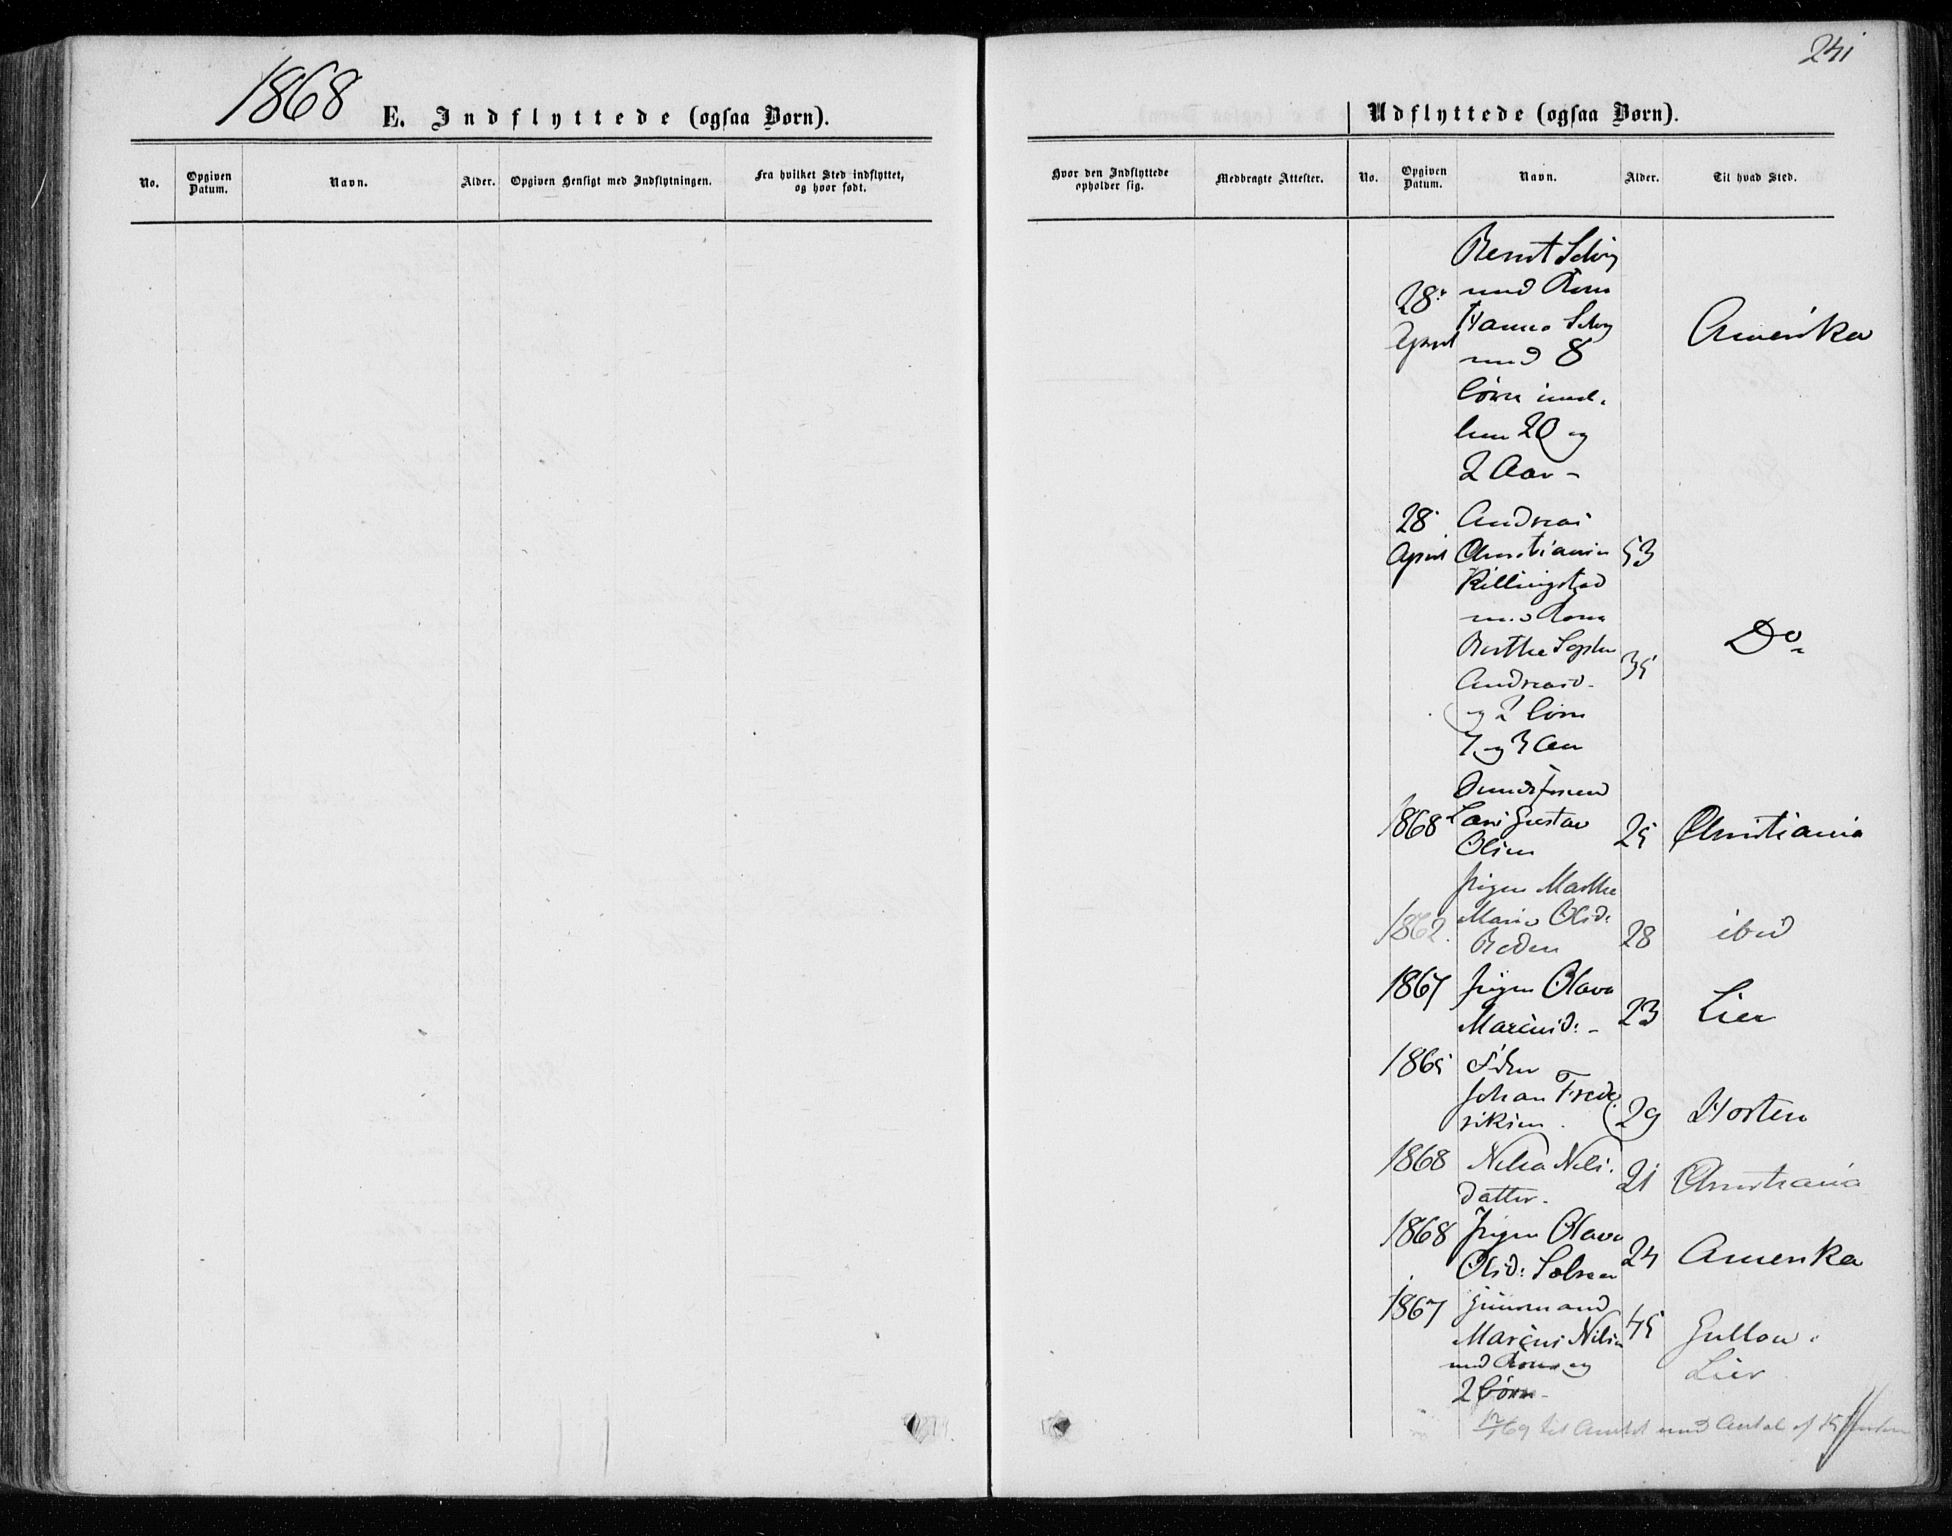 1868
E. Indflyttede (ogsaa Børn).
No.
Opgiven Datum.
Navn.
Alder.
Opgiven Hensigt med Indflytningen.
Fra hvilket Sted indflyttet, og hvor født.
241
Udflyttede (ogsaa Børn).
Hvor den Indflyttede opholder sig.
Medbragte Attester.
No.
Opgiven Datum.
Navn.
Alder.
Til hvad Sted.
Berndt Selvig
28 med Kone
April Hanna Selvig Amerika
med 8
börn imel-
lem 20 og
2 Aar -
28 Andreas
April Christiansen 53
Killingstad
med Kone
Berthe Sophie Do
Andreasd. 35
og 2 börn
7 og 3 Aar
1868 Lars Gustav 25 Christiania
Olsen
Pigen Marthe
1862 Marie Olsd. 28 ibid
1867 Pigen Olava
Marcusd. - 23 Lier
1865
Johan Frede
riksen 29 Horten
1868 Nilia Nils-
datter. 21 Christiania
1868 Pigen Olava
Olsd: 24 Amerika
1867 Huusmand
Marcus Nilsen 45 Gullow.
med Kone og Lier
2 börn -
69 til Amtet med Antal af